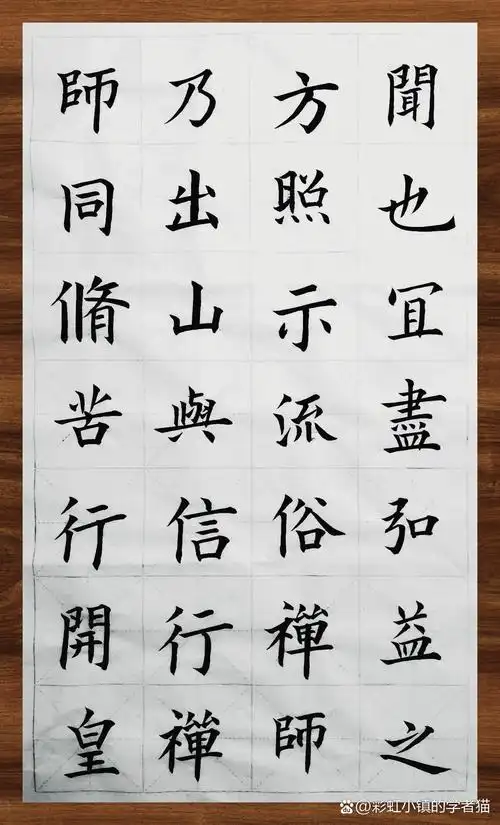 聞也冝盡弘益之
方照示流俗禪師
乃出山與信行禪
師同脩苦行開皇
彩虹小镇的学者猫